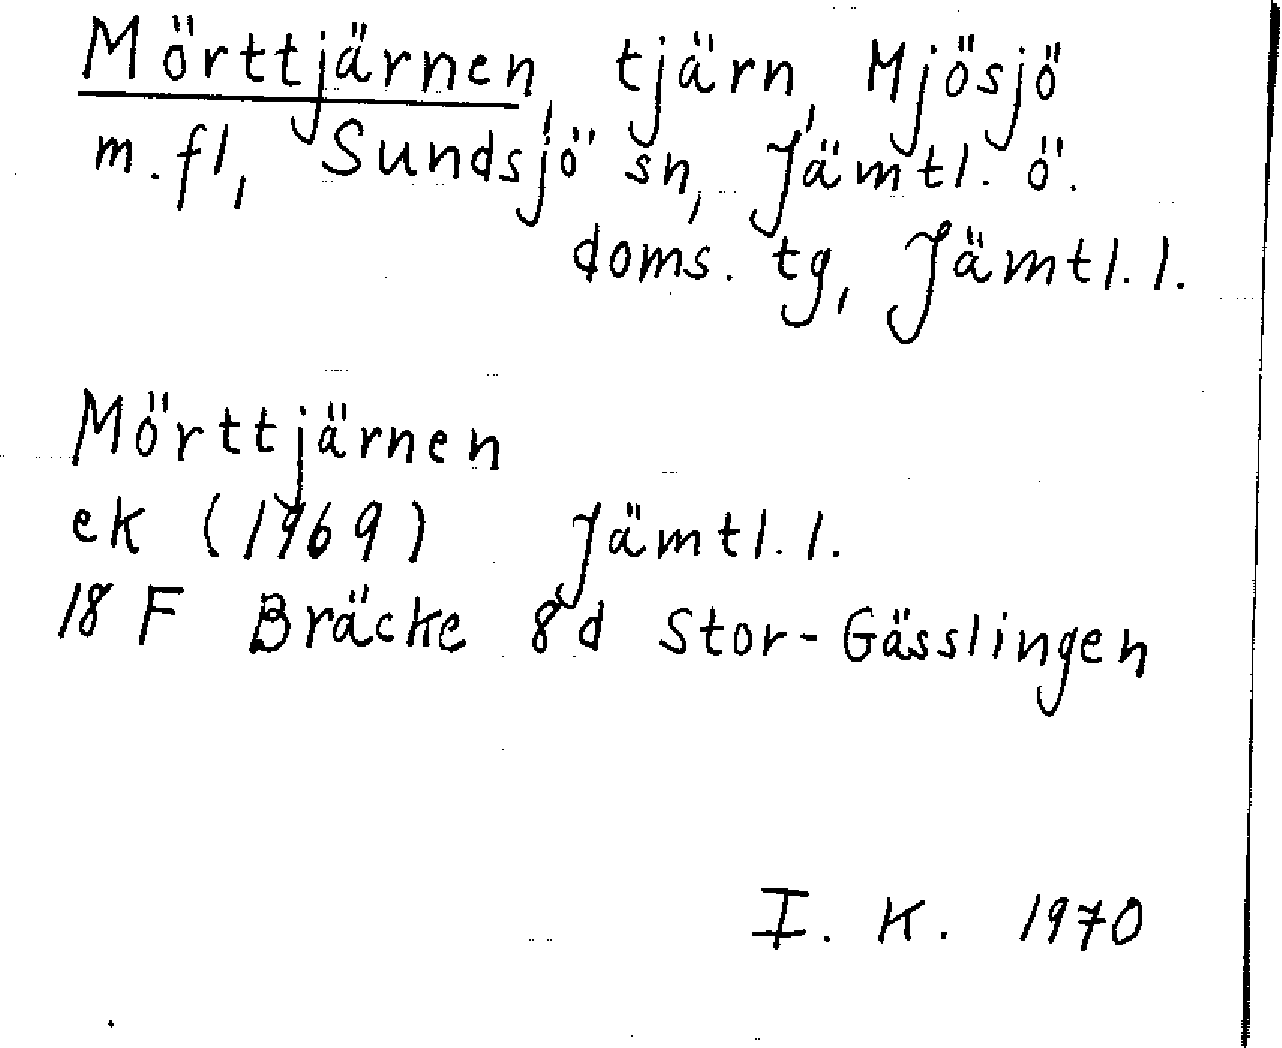 Mörttjärnen, tjärn, Mjösjö
m.fl, Sundsjö sn, Jämtl. ö.
doms. tg, Jämtl.l.
Mörttjärnen
ek (1969) Jämtl.l.
18 F Bräcke 8 d Stor-Gässlingen
I. K. 1970